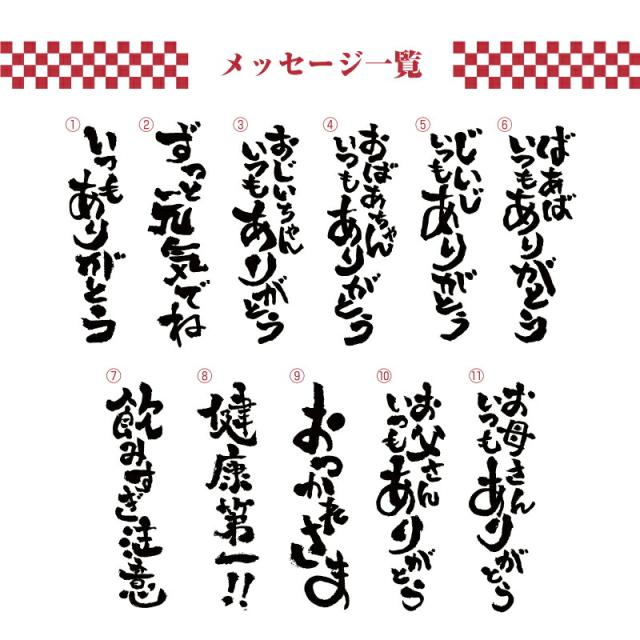 メッセージ一覧
①
いつも
ありがとう
②
ずっと元気でね
③
おじいちゃん
いつも
ありがとう
④
おばあちゃん
いつも
ありがとう
⑤
じいじ
いつも
ありがとう
⑥
ばあば
いつも
ありがとう
⑦
飲みすぎ注意
⑧
健康第一!!
⑨
おつかれさま
⑩
お父さん
いつも
ありがとう
⑪
お母さん
いつも
ありがとう